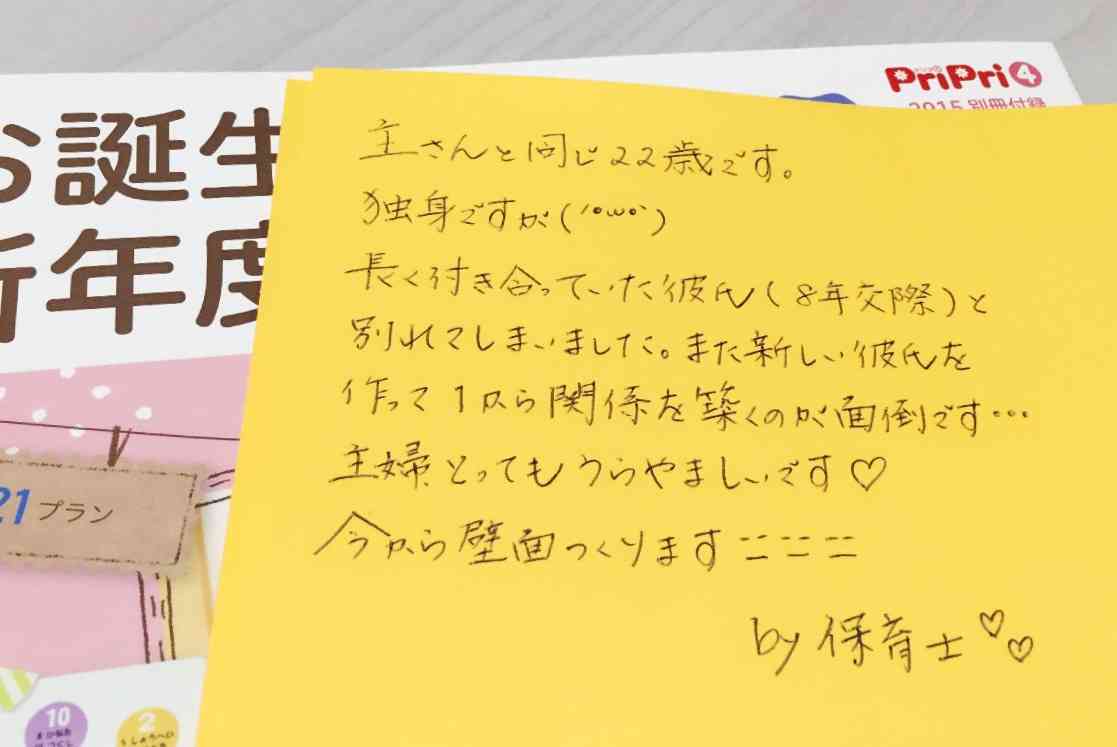 PriPri4
2015 別冊付録
お誕生
新年度
21 プラン
10
2
主さんと同じ22歳です。
独身ですが(´•ω•`)
長く付き合っていた彼氏(8年交際)と
別れてしまいました。また新しい彼氏を
作って1から関係を築くのが面倒です…
主婦とってもうらやましいです♡
今から壁面つくります ニニニ
by 保育士♡♡